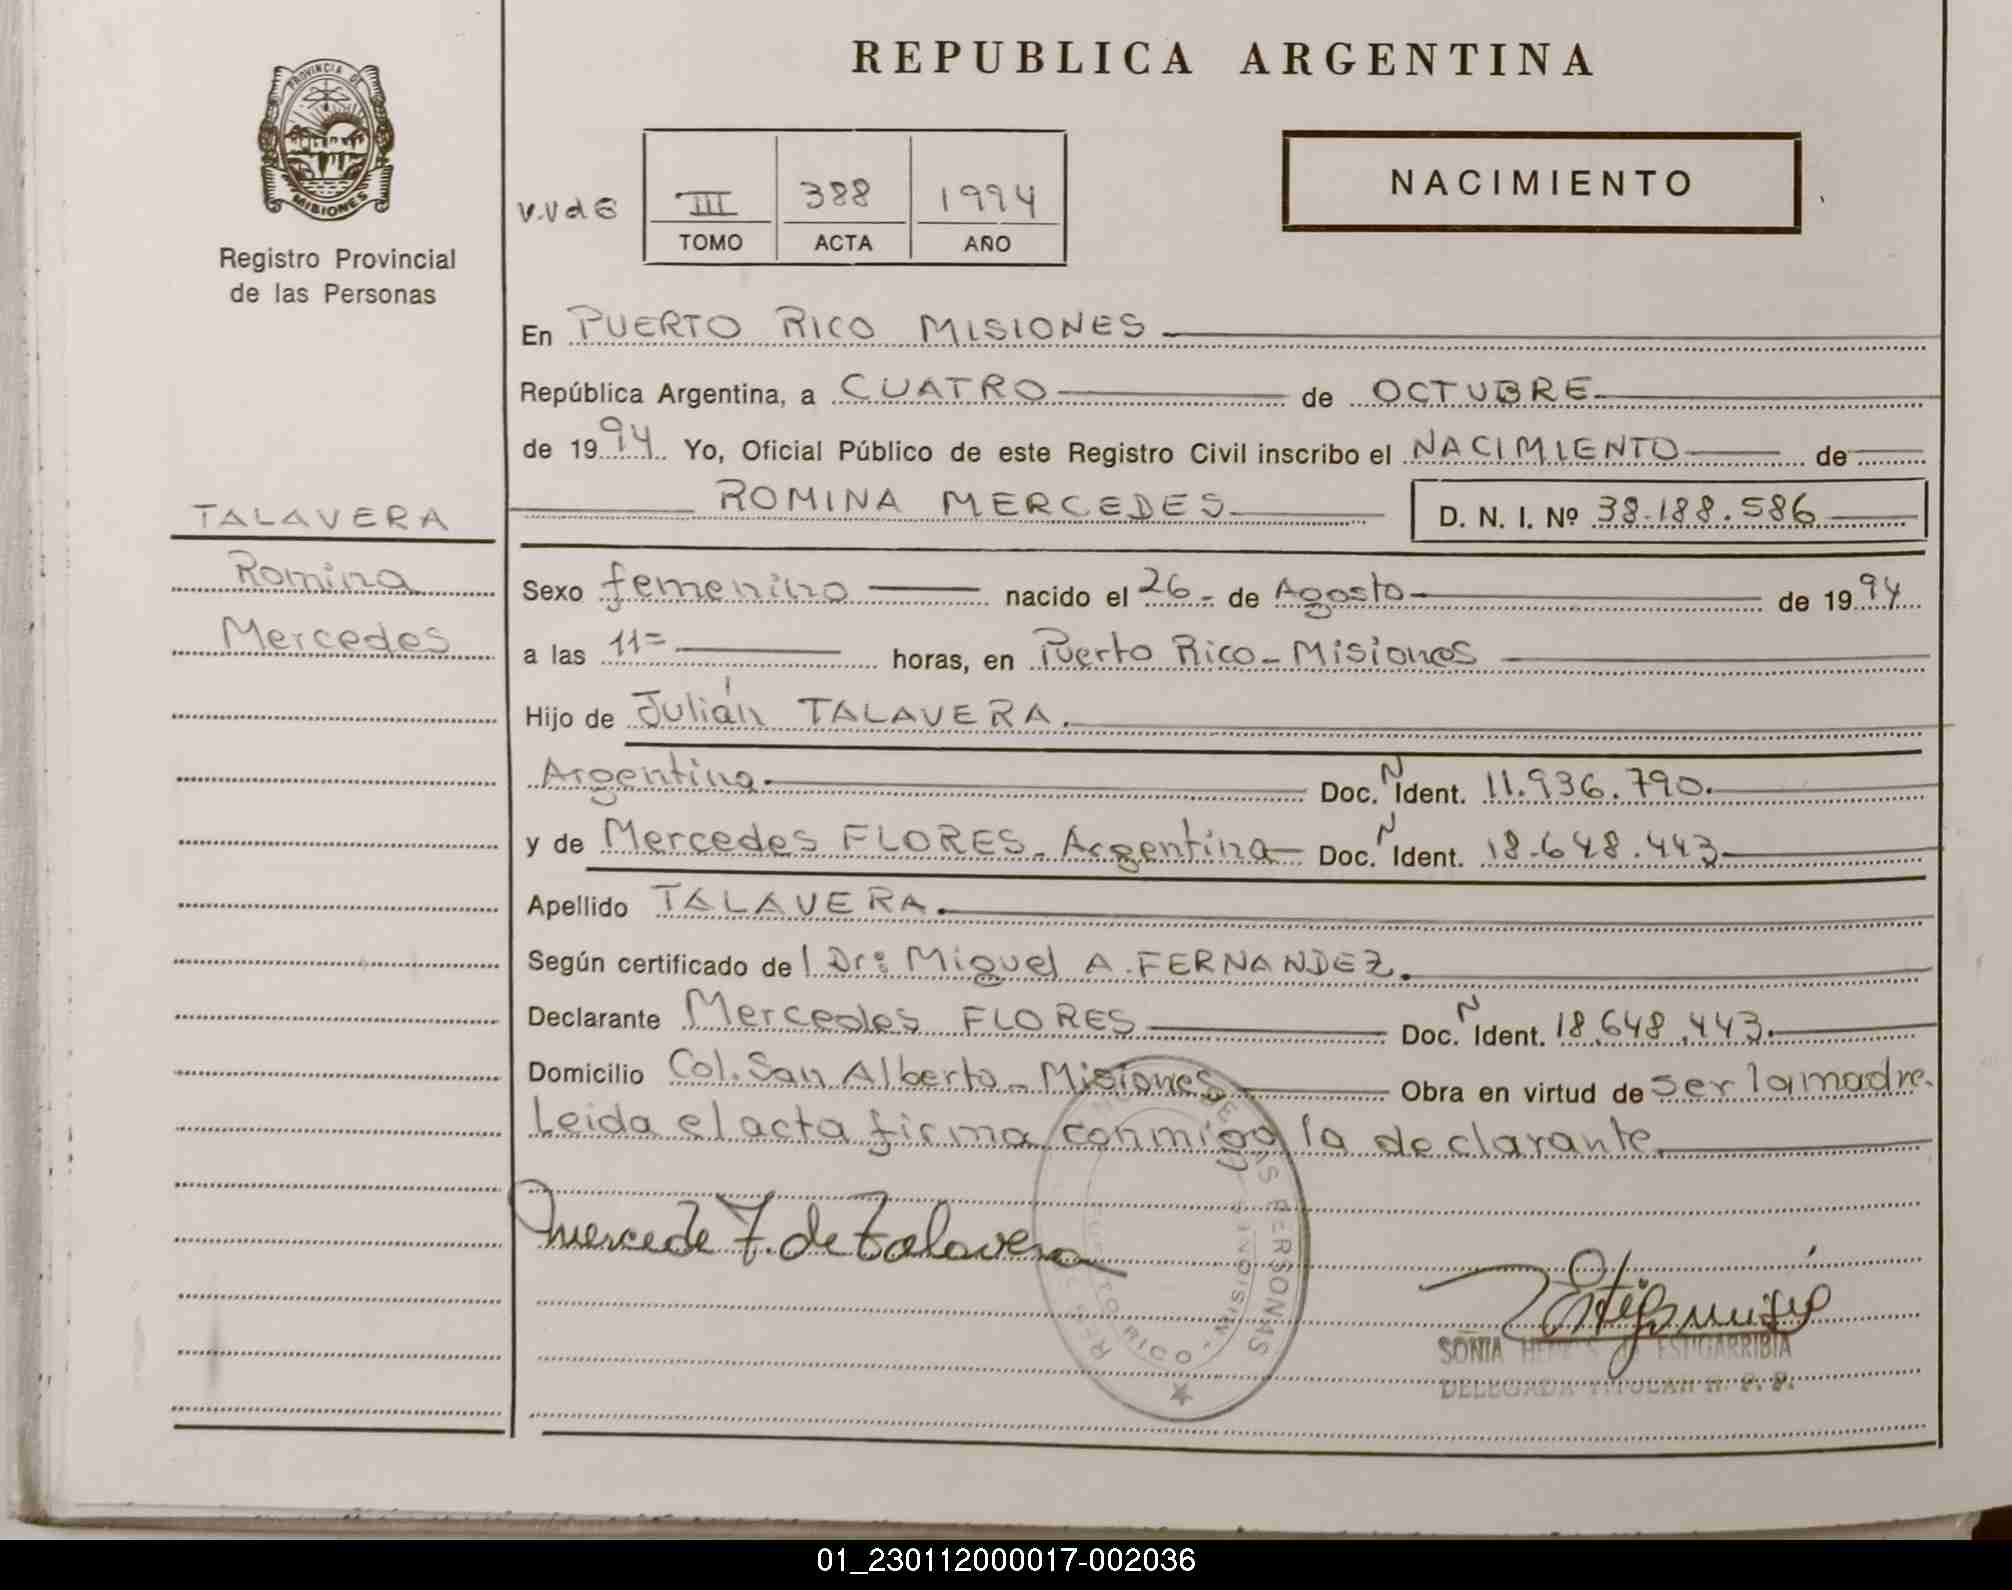 REPUBLICA ARGENTINA
PROVINCIA DE
MISIONES
Registro Provincial
de las Personas
NACIMIENTO
V.V d E
III 388 1994
TOMO ACTA AÑO
En PUERTO RICO MISIONES
República Argentina, a CUATRO de OCTUBRE
de 1994 Yo, Oficial Público de este Registro Civil inscribo el NACIMIENTO de
ROMINA MERCEDES D. N. I. Nº 38.188.586
TALAVERA
Romina
Mercedes
Sexo femenino nacido el 26 de Agosto de 1994
a las 11= horas, en Puerto Rico - Misiones
Hijo de Julián TALAVERA.
Argentina. Doc. N Ident. 11.936.790.
y de Mercedes FLORES - Argentina Doc. N Ident. 18.648.443
Apellido TALAVERA.
Según certificado del Dr: Miguel A. FERNANDEZ.
Declarante Mercedes FLORES Doc. N Ident. 18.648.443.
Domicilio Col. San Alberto - Misiones Obra en virtud de ser la madre.
Leida el acta firma conmigo la declarante.
Mercede F. de Talavera
DE LAS PERSONAS
RICO - MISIONES
SONIA ESTIGARRIBIA
DELEGADA TITULAR R. P. P.
01_230112000017-002036